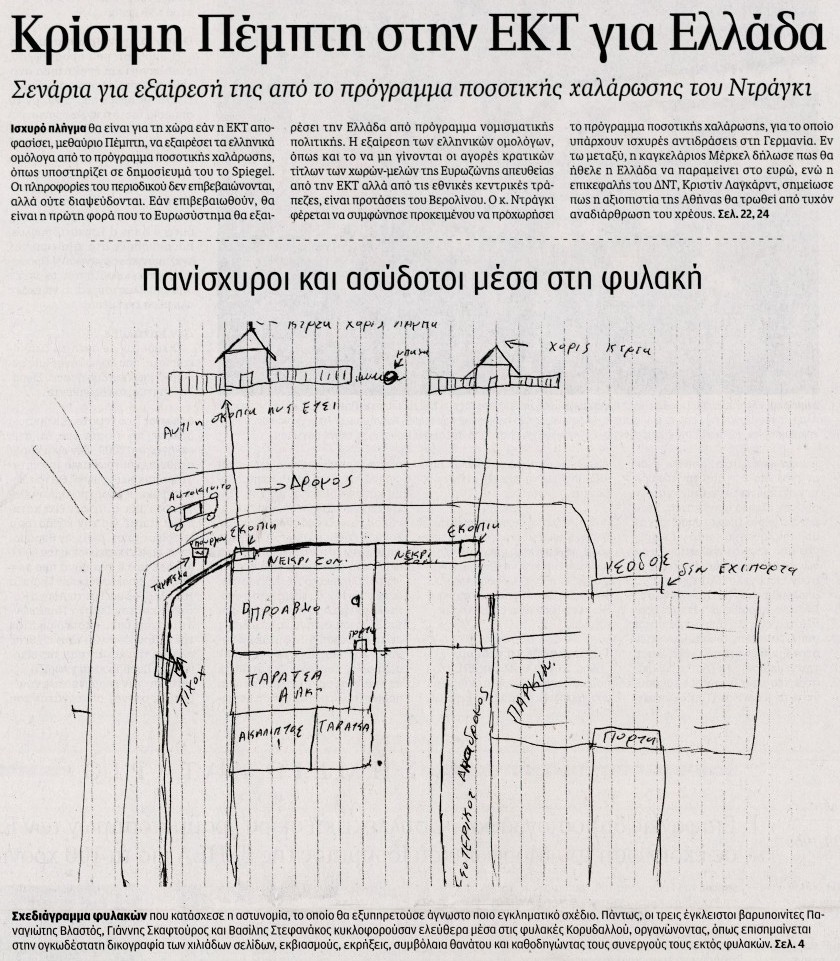 Κρίσιμη Πέμπτη στην ΕΚΤ για Ελλάδα
Σενάρια για εξαίρεσή της από το πρόγραμμα ποσοτικής χαλάρωσης του Ντράγκι
Ισχυρό πλήγμα θα είναι για τη χώρα εάν η ΕΚΤ απο-
φασίσει, μεθαύριο Πέμπτη, να εξαιρέσει τα ελληνικά
ομόλογα από το πρόγραμμα ποσοτικής χαλάρωσης,
όπως υποστηρίζει σε δημοσίευμά του το Spiegel.
Οι πληροφορίες του περιοδικού δεν επιβεβαιώνονται,
αλλά ούτε διαψεύδονται. Εάν επιβεβαιωθούν, θα
είναι η πρώτη φορά που το Ευρωσύστημα θα εξαι-
ρέσει την Ελλάδα από πρόγραμμα νομισματικής
πολιτικής. Η εξαίρεση των ελληνικών ομολόγων,
όπως και το να μη γίνονται οι αγορές κρατικών
τίτλων των χωρών-μελών της Ευρωζώνης απευθείας
από την ΕΚΤ αλλά από τις εθνικές κεντρικές τρά-
πεζες, είναι προτάσεις του Βερολίνου. Ο κ. Ντράγκι
φέρεται να συμφώνησε προκειμένου να προχωρήσει
το πρόγραμμα ποσοτικής χαλάρωσης, για το οποίο
υπάρχουν ισχυρές αντιδράσεις στη Γερμανία. Εν
τω μεταξύ, η καγκελάριος Μέρκελ δήλωσε πως θα
ήθελε η Ελλάδα να παραμείνει στο ευρώ, ενώ η
επικεφαλής του ΔΝΤ, Κριστίν Λαγκάρντ, σημείωσε
πως η αξιοπιστία της Αθήνας θα τρωθεί από τυχόν
αναδιάρθρωση του χρέους. Σελ. 22, 24
Πανίσχυροι και ασύδοτοι μέσα στη φυλακή
χορις
χορις
ΑυΤΙ η σκοπια
ΕΤΣΙ
Αυτοκινιτο
Δρομος
ΣΚΟΠΙΑ
ΣΚΟΠΙΑ
ΝΕΚΡΙ ΖΟΝ.
ΝΕΚΡΙ
ΔΕΝ ΕΧΙ ΠΟΡΤΑ
ΠΡΟΑΒΛΙΟ
ΠΟΡΤΑ
ΤΙΧΟΣ
ΤΑΡΑΤΣΑ
ΑΚΑΛΙΠΤΟΣ
ΤΑΡΑΤΣΑ
ΕΣΟΤΕΡΙΚΟΣ
ΠΑΡΚΙΝ.
ΠΟΡΤΑ
Σχεδιάγραμμα φυλακών που κατάσχεσε η αστυνομία, το οποίο θα εξυπηρετούσε άγνωστο ποιο εγκληματικό σχέδιο. Πάντως, οι τρεις έγκλειστοι βαρυποινίτες Πα-
ναγιώτης Βλαστός, Γιάννης Σκαφτούρος και Βασίλης Στεφανάκος κυκλοφορούσαν ελεύθερα μέσα στις φυλακές Κορυδαλλού, οργανώνοντας, όπως επισημαίνεται
στην ογκωδέστατη δικογραφία των χιλιάδων σελίδων, εκβιασμούς, εκρήξεις, συμβόλαια θανάτου και καθοδηγώντας τους συνεργούς τους εκτός φυλακών. Σελ. 4